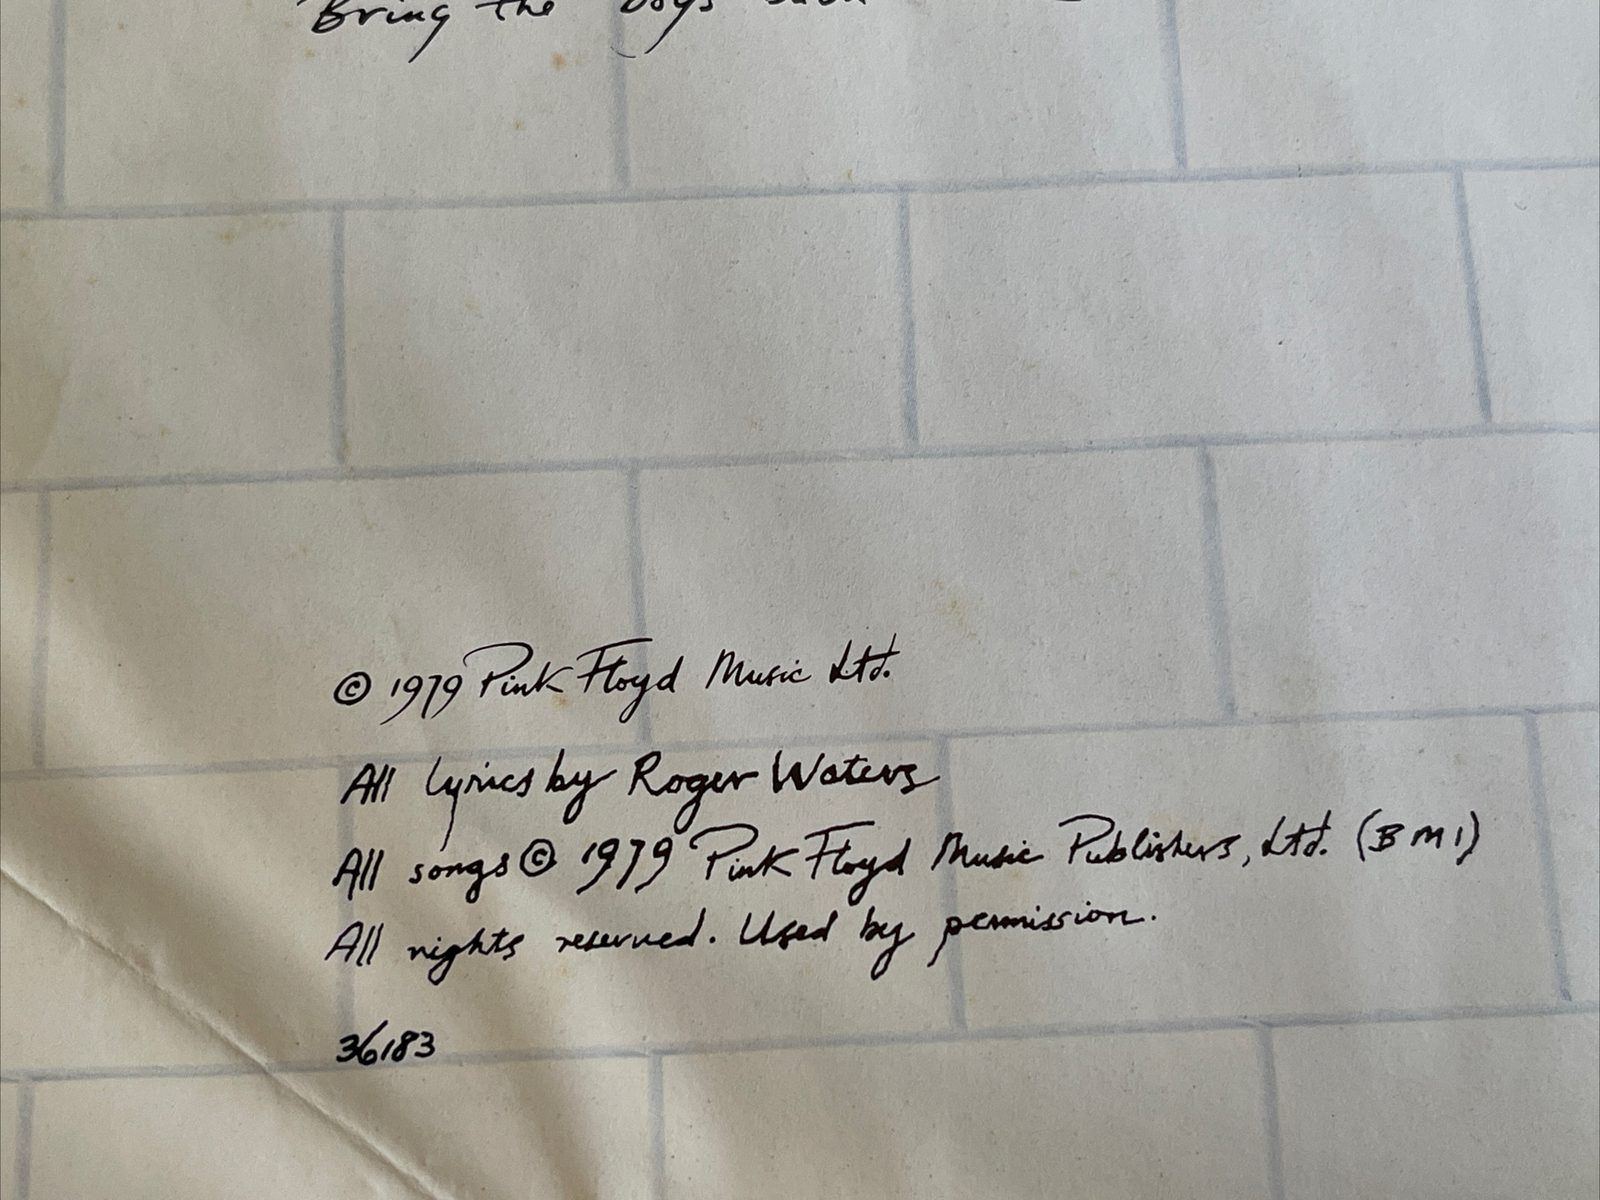 Bring the boys back
© 1979 Pink Floyd Music Ltd.
All lyrics by Roger Waters
All songs © 1979 Pink Floyd Music Publishers, Ltd. (BMI)
All rights reserved. Used by permission.
36183